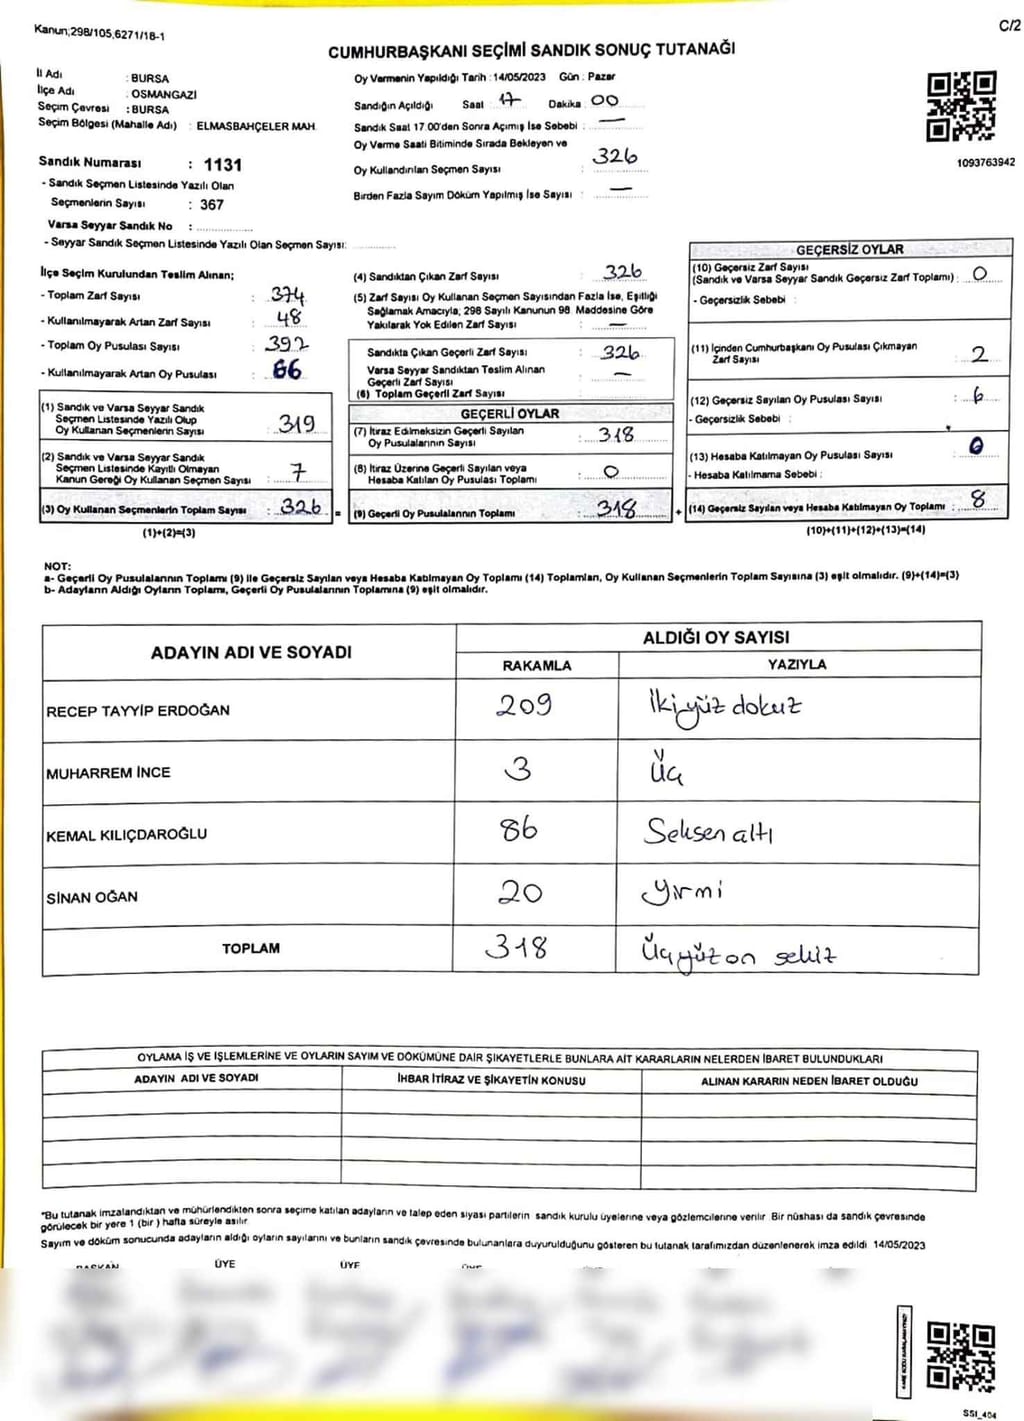 Kanun;298/105,6271/18-1
C/2
CUMHURBAŞKANI SEÇİMİ SANDIK SONUÇ TUTANAĞI
İl Adı : BURSA
İlçe Adı : OSMANGAZİ
Seçim Çevresi : BURSA
Seçim Bölgesi (Mahalle Adı) : ELMASBAHÇELER MAH.
Sandık Numarası : 1131
- Sandık Seçmen Listesinde Yazılı Olan
Seçmenlerin Sayısı : 367
Varsa Seyyar Sandık No :
- Seyyar Sandık Seçmen Listesinde Yazılı Olan Seçmen Sayısı:
Oy Vermenin Yapıldığı Tarih : 14/05/2023 Gün : Pazar
Sandığın Açıldığı Saat 17 Dakika : 00
Sandık Saat 17.00'den Sonra Açımış İse Sebebi : —
Oy Verme Saati Bitiminde Sırada Bekleyen ve
Oy Kullandırılan Seçmen Sayısı : 326
Birden Fazla Sayım Döküm Yapılmış İse Sayısı : —
1093763942
İlçe Seçim Kurulundan Teslim Alınan;
- Toplam Zarf Sayısı : 374
- Kullanılmayarak Artan Zarf Sayısı : 48
- Toplam Oy Pusulası Sayısı : 392
- Kullanılmayarak Artan Oy Pusulası : 66
(1) Sandık ve Varsa Seyyar Sandık
Seçmen Listesinde Yazılı Olup
Oy Kullanan Seçmenlerin Sayısı : 319
(2) Sandık ve Varsa Seyyar Sandık
Seçmen Listesinde Kayıtlı Olmayan
Kanun Gereği Oy Kullanan Seçmen Sayısı : 7
(3) Oy Kullanan Seçmenlerin Toplam Sayısı : 326 =
(1)+(2)=(3)
(4) Sandıktan Çıkan Zarf Sayısı : 326
(5) Zarf Sayısı Oy Kullanan Seçmen Sayısından Fazla İse, Eşitliği
Sağlamak Amacıyla; 298 Sayılı Kanunun 98. Maddesine Göre
Yakılarak Yok Edilen Zarf Sayısı : —
Sandıkta Çıkan Geçerli Zarf Sayısı : 326
Varsa Seyyar Sandıktan Teslim Alınan
Geçerli Zarf Sayısı : —
(6) Toplam Geçerli Zarf Sayısı :
GEÇERLİ OYLAR
(7) İtiraz Edilmeksizin Geçerli Sayılan
Oy Pusulalarının Sayısı : 318
(8) İtiraz Üzerine Geçerli Sayılan veya
Hesaba Katılan Oy Pusulası Toplamı : 0
(9) Geçerli Oy Pusulalarının Toplamı : 318 +
GEÇERSİZ OYLAR
(10) Geçersiz Zarf Sayısı
(Sandık ve Varsa Seyyar Sandık Geçersiz Zarf Toplamı) : 0
- Geçersizlik Sebebi :
(11) İçinden Cumhurbaşkanı Oy Pusulası Çıkmayan
Zarf Sayısı : 2
(12) Geçersiz Sayılan Oy Pusulası Sayısı : 6
- Geçersizlik Sebebi :
(13) Hesaba Katılmayan Oy Pusulası Sayısı : 0
- Hesaba Katılmama Sebebi :
(14) Geçersiz Sayılan veya Hesaba Katılmayan Oy Toplamı : 8
(10)+(11)+(12)+(13)=(14)
NOT:
a- Geçerli Oy Pusulalarının Toplamı (9) ile Geçersiz Sayılan veya Hesaba Katılmayan Oy Toplamı (14) Toplamları, Oy Kullanan Seçmenlerin Toplam Sayısına (3) eşit olmalıdır. (9)+(14)=(3)
b- Adayların Aldığı Oyların Toplamı, Geçerli Oy Pusulalarının Toplamına (9) eşit olmalıdır.
ADAYIN ADI VE SOYADI
ALDIĞI OY SAYISI
RAKAMLA YAZIYLA
RECEP TAYYİP ERDOĞAN 209 İkiyüz dokuz
MUHARREM İNCE 3 Üç
KEMAL KILIÇDAROĞLU 86 Seksen altı
SİNAN OĞAN 20 Yirmi
TOPLAM 318 Üçyüz on sekiz
OYLAMA İŞ VE İŞLEMLERİNE VE OYLARIN SAYIM VE DÖKÜMÜNE DAİR ŞİKAYETLERLE BUNLARA AİT KARARLARIN NELERDEN İBARET BULUNDUKLARI
ADAYIN ADI VE SOYADI İHBAR İTİRAZ VE ŞİKAYETİN KONUSU ALINAN KARARIN NEDEN İBARET OLDUĞU
*Bu tutanak imzalandıktan ve mühürlendikten sonra seçime katılan adayların ve talep eden siyasi partilerin sandık kurulu üyelerine veya gözlemcilerine verilir. Bir nüshası da sandık çevresinde
görülecek bir yere 1 (bir ) hafta süreyle asılır.
Sayım ve döküm sonucunda adayların aldığı oyların sayılarını ve bunların sandık çevresinde bulunanlara duyurulduğunu gösteren bu tutanak tarafımızdan düzenlenerek imza edildi. 14/05/2023
BAŞKAN ÜYE ÜYE
SSI_404